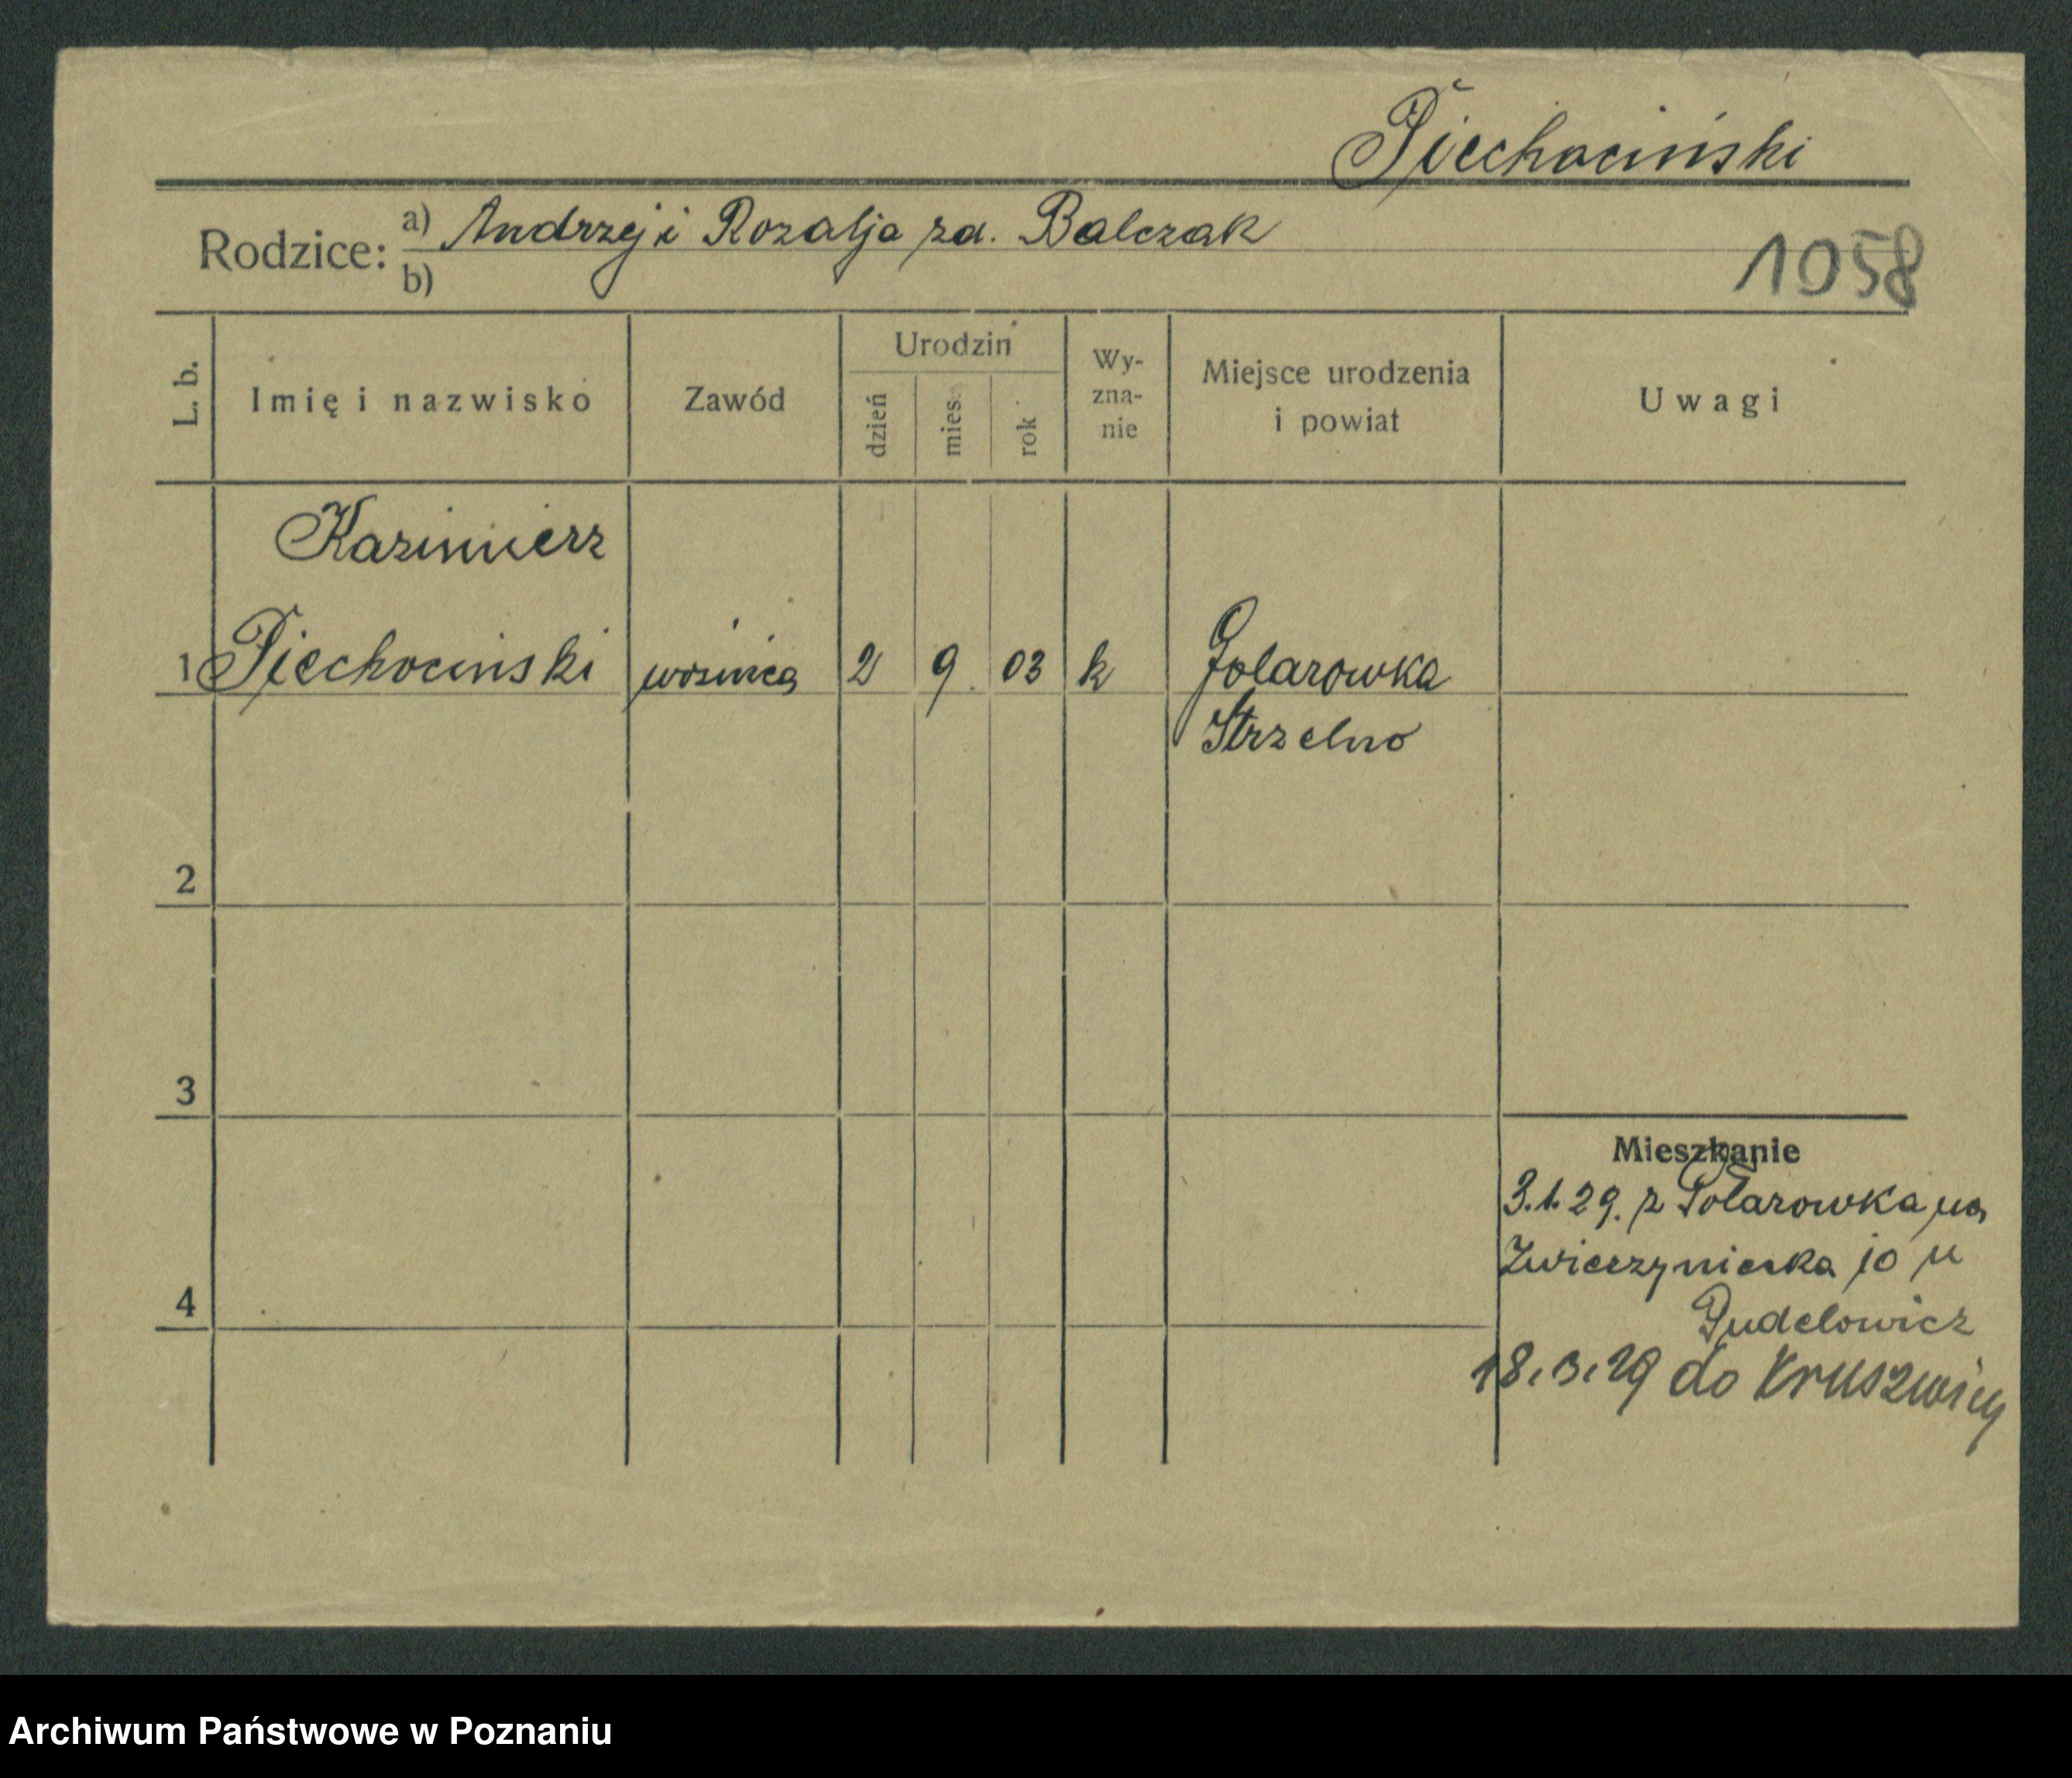 Piechociński
Rodzice: a) Andrzej i Rozalja zd. Balczak
b)
1058
L. b.
Imię i nazwisko
Zawód
Urodzin
dzień
mies.
rok
Wy-
zna-
nie
Miejsce urodzenia
i powiat
Uwagi
Kazimierz
1 Piechociński woźnica 2 9 03 k Polarowka
Strzelno
2
3
4
Mieszkanie
3.1.29. z Polarowka na
Zwierzyniecka 10 u
Dudelowicz
18.3.29 do Kruszwicy
Archiwum Państwowe w Poznaniu